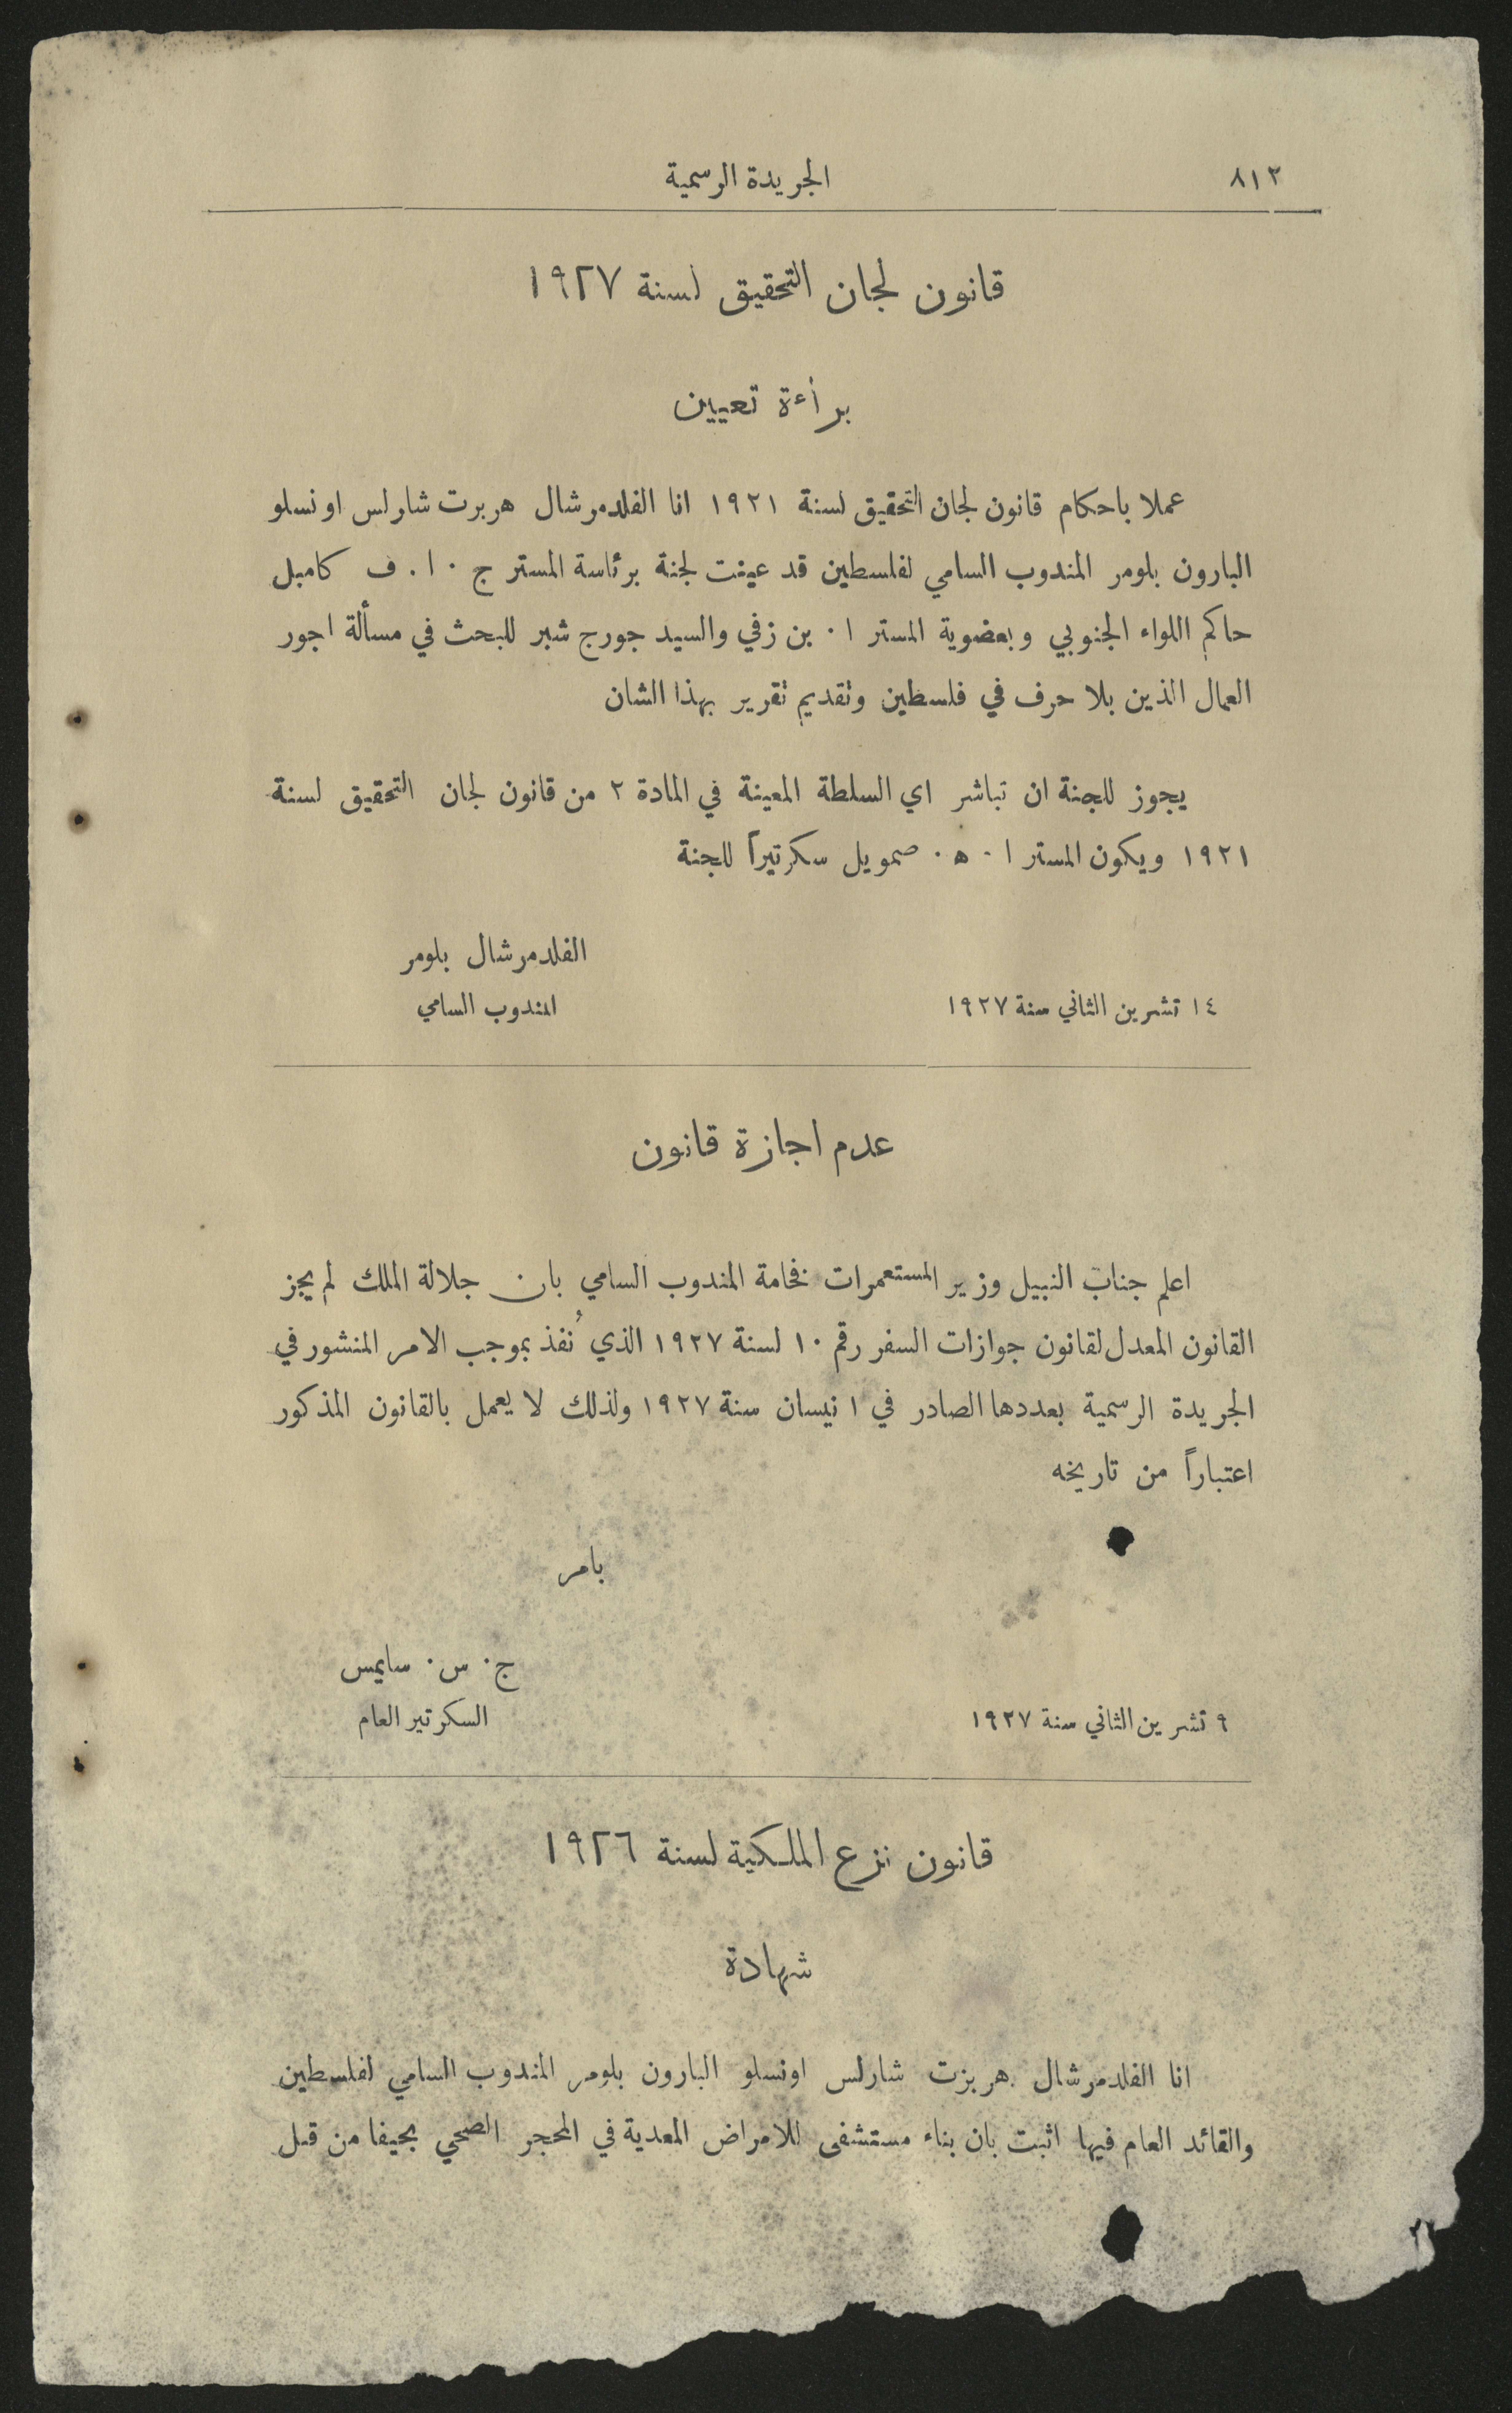 ٨١٢
الجريدة الرسمية
قانون لجان التحقيق لسنة ١٩٢٧
براءة تعيين
عملا باحكام قانون لجان التحقيق لسنة ١٩٢١ انا الفلدمرشال هربرت شارلس اونسلو
البارون بلومر المندوب السامي لفلسطين قد عينت لجنة برئاسة المستر ج ٠ ا . ف كامبل
حاكم اللواء الجنوبي وبعضوية المستر ا ٠ بن زفي والسيد جورج شبر للبحث في مسألة اجور
العمال الذين بلا حرف في فلسطين وتقديم تقرير بهذا الشان
يجوز للجنة ان تباشر اي السلطة المعينة في المادة ٢ من قانون لجان التحقيق لسنة
١٩٢١ ويكون المستر ا ٠ ه ٠ صمويل سكرتيراً للجنة
الفلدمرشال بلومر
١٤ تشرين الثاني سنة ١٩٢٧ المندوب السامي
عدم اجازة قانون
اعلم جناب النبيل وزير المستعمرات فخامة المندوب السامي بان جلالة الملك لم يجز
القانون المعدل لقانون جوازات السفر رقم ١٠ لسنة ١٩٢٧ الذي نُفذ بموجب الامر المنشور في
الجريدة الرسمية بعددها الصادر في ١ نيسان سنة ١٩٢٧ ولذلك لا يعمل بالقانون المذكور
اعتباراً من تاريخه
بامر
ج ٠ س ٠ سايمس
٩ تشرين الثاني سنة ١٩٢٧ السكرتير العام
قانون نزع الملكية لسنة ١٩٢٦
شهادة
انا الفلدمرشال هربرت شارلس اونسلو البارون بلومر المندوب السامي لفلسطين
والقائد العام فيها اثبت بان بناء مستشفى للامراض المعدية في المحجر الصحي بحيفا من قبل